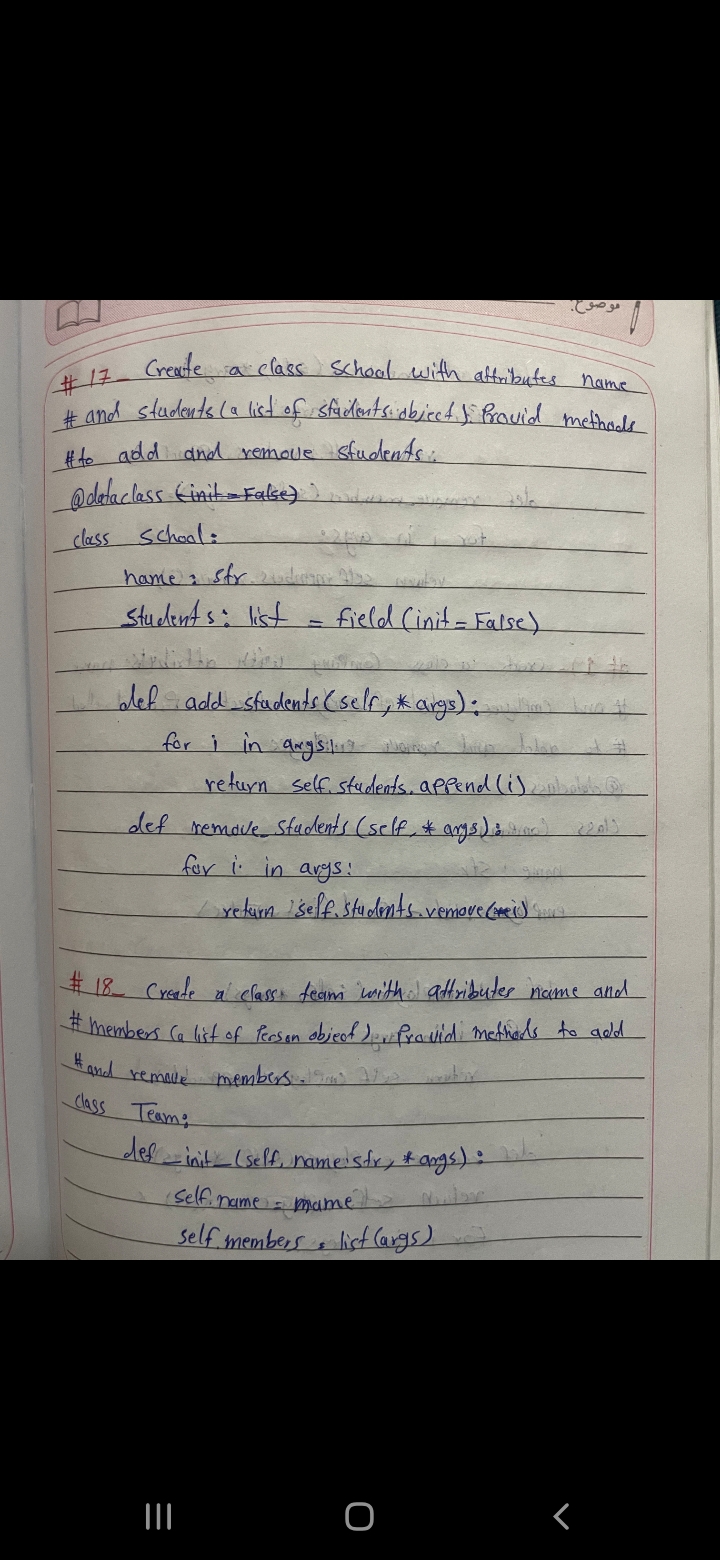 موضوع:
# 17- Create a class School with attributes name
# and students (a list of students object). Provid methods
# to add and remove students.
@dataclass (init=False)
class School:
name: str
students: list = field(init=False)
def add_students(self, *args):
for i in args:
return self.students.append(i)
def remove_students(self, *args):
for i in args:
return self.students.remove(i)
# 18- Create a class team with attributes name and
# members (a list of Person object). Provid methods to add
# and remove members.
class Team:
def _init_(self, name:str, *args):
self.name = name
self.members = list(args)